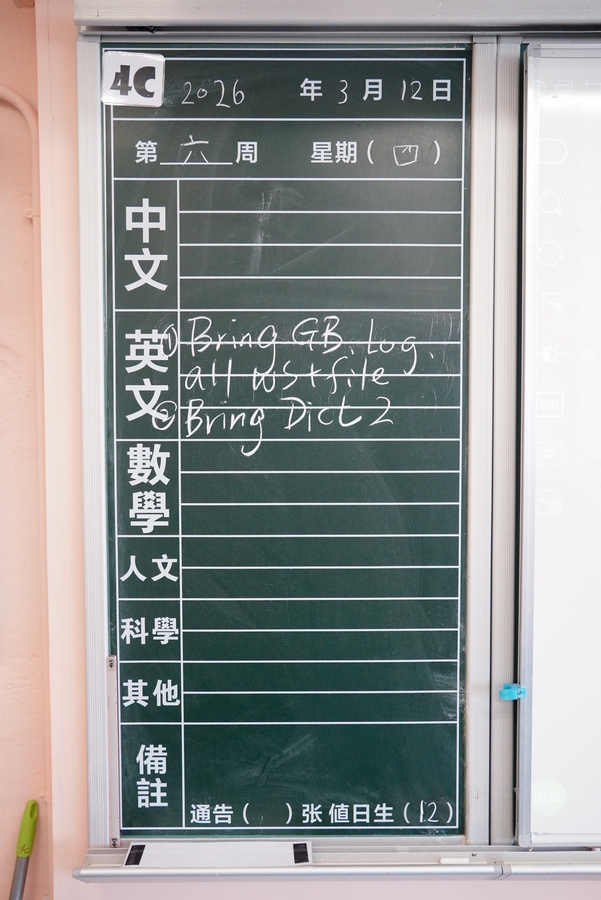 4C
2026 年 3 月 12 日
第 六 周 星期 ( 四 )
中文
英文
① Bring GB, Log,
all ws + file
② Bring Dict 2
數學
人文
科學
其他
備註
通告 ( ) 张 值日生 ( 12 )